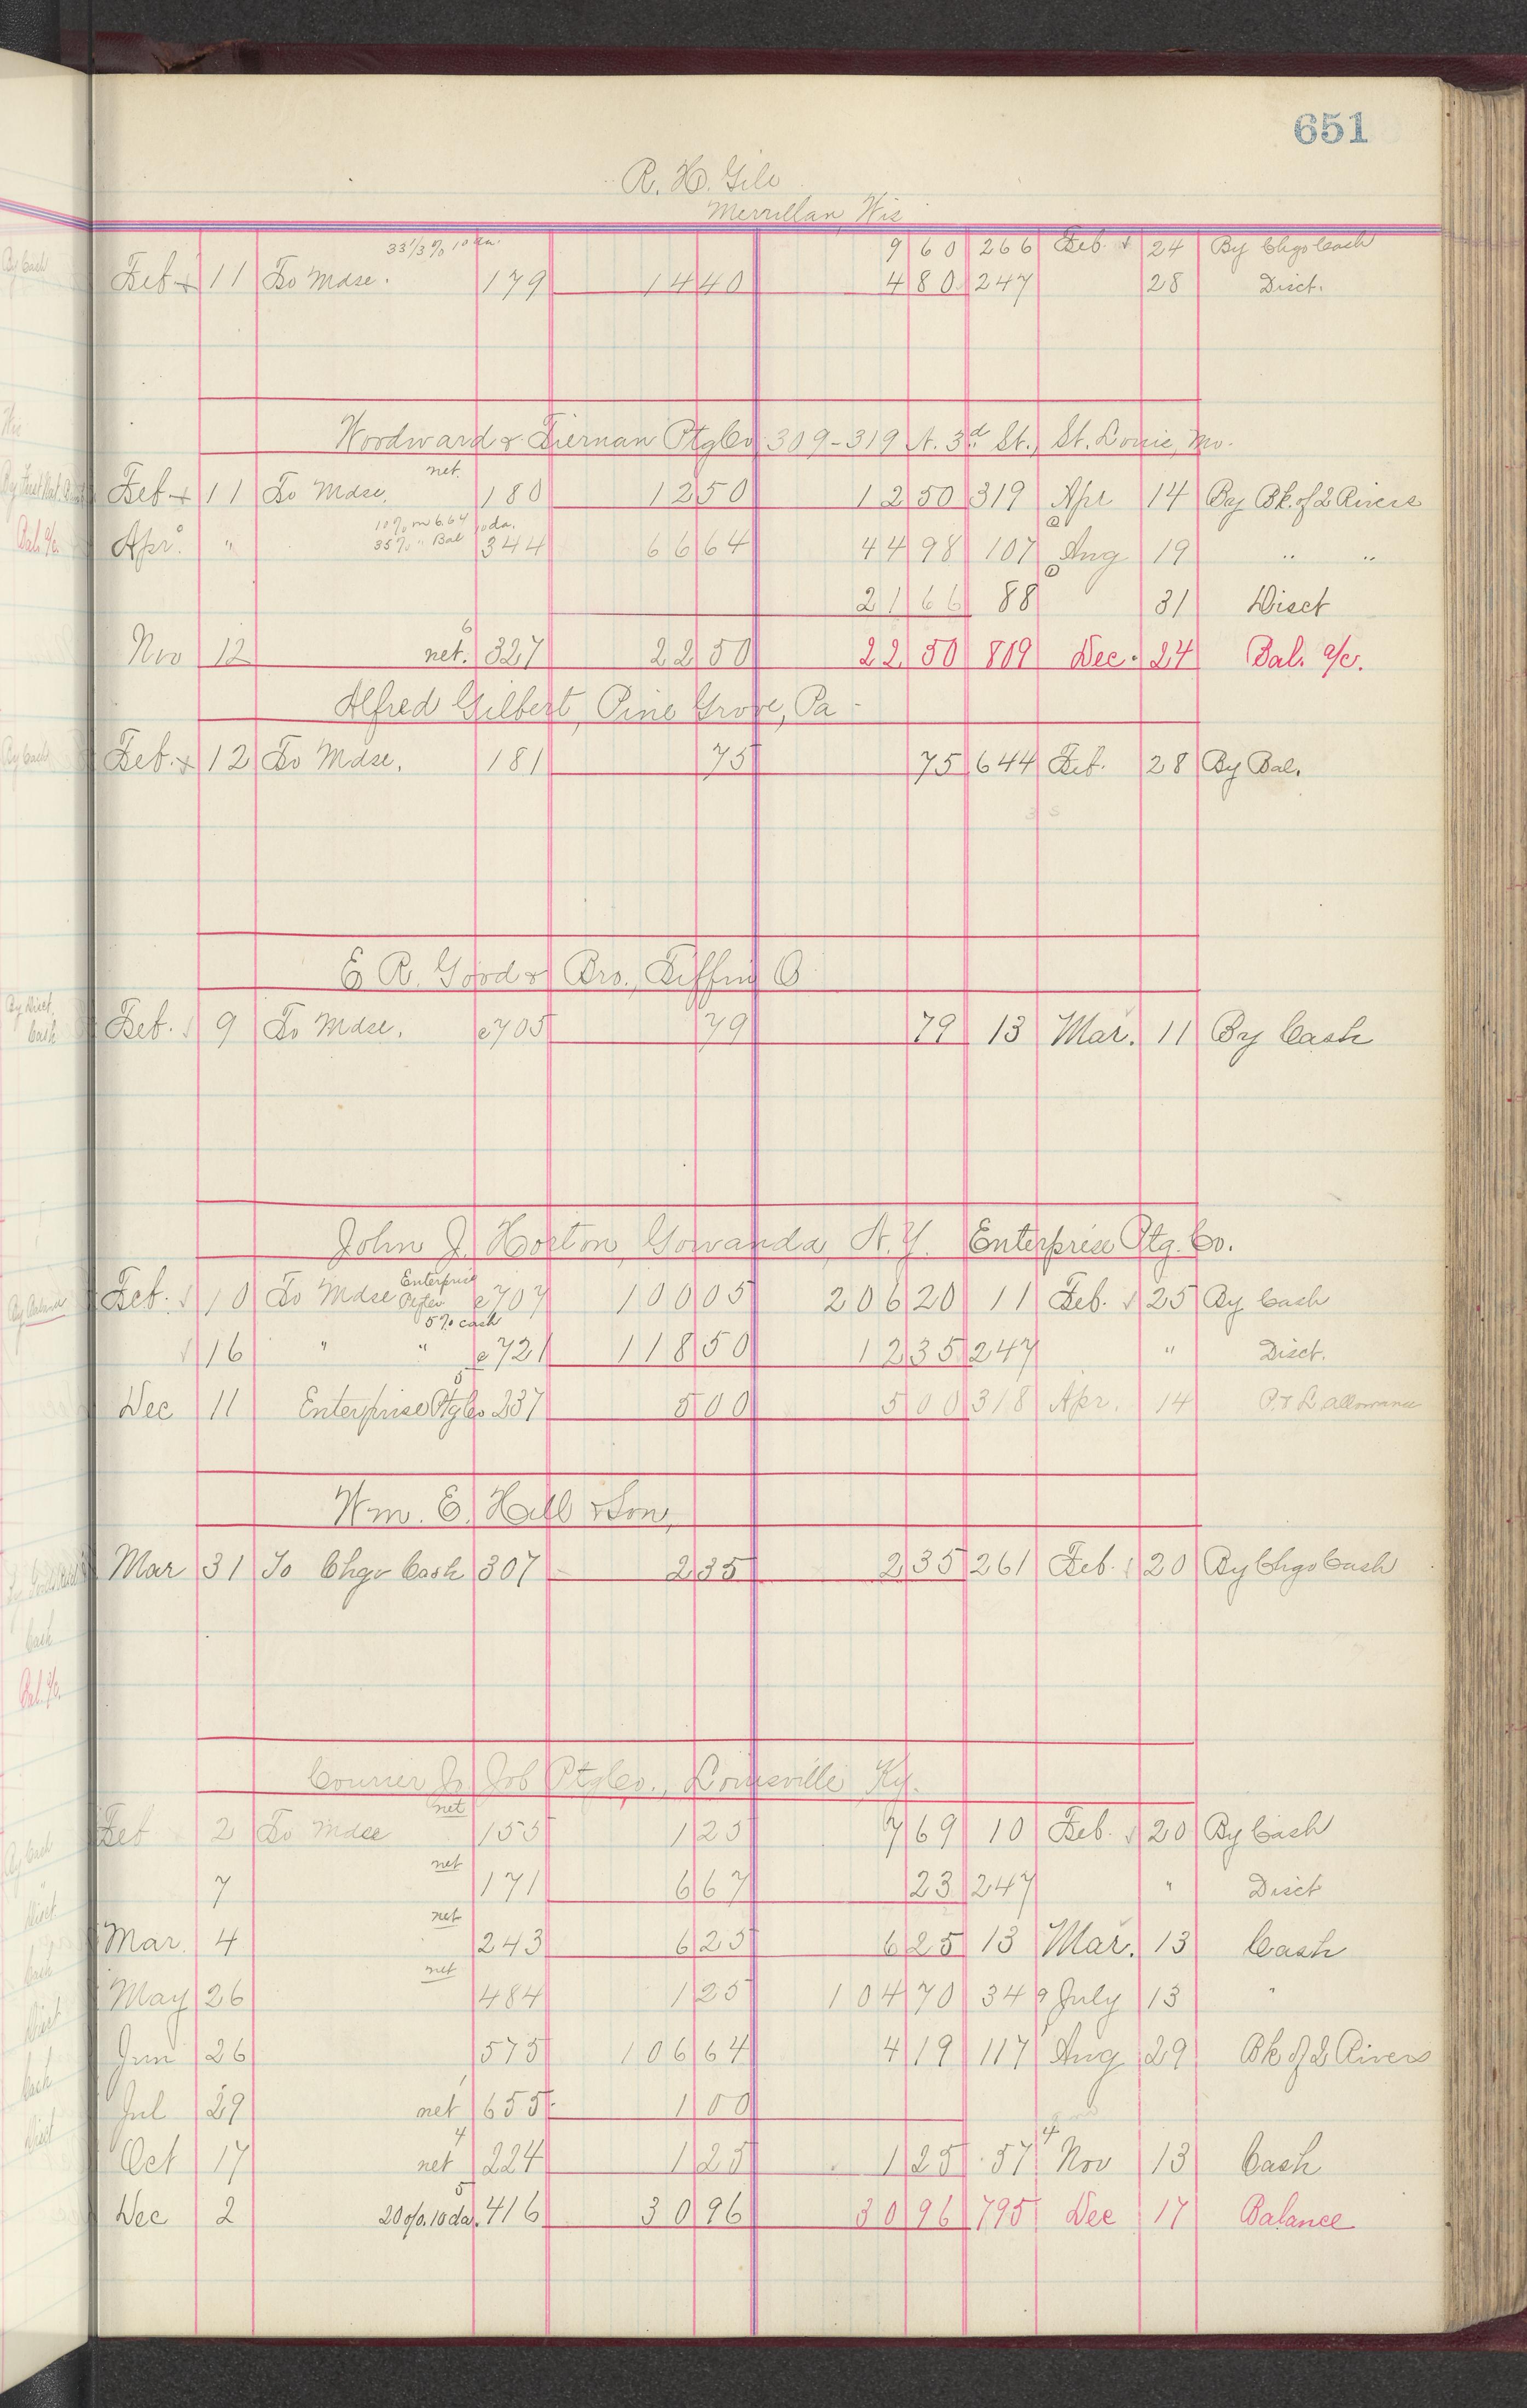 651
R. H. Gile
Merrillan, Wis
33 1/3 % 10 da. 9 60 266 Feb. 24 By Chgo Cash
Feb 11 To Mdse. 179 14 40 4 80 247 28 Disct.
Woodward & Tiernan Ptg Co 309-319 N. 3d St., St. Louis, Mo.
net.
Feb 11 To Mdse. 180 12 50 12 50 319 Apr 14 By Bk. of 2 Rivers
10% on 6.64 10 da.
Apr. " 35% " Bal 344 66 64 44 98 107 Aug 19 " "
21 66 88 31 Disct
6
Nov 12 net. 327 22 50 22 50 809 Dec. 24 Bal. a/c.
Alfred Gilbert, Pine Grove, Pa -
Feb. 12 To Mdse. 181 75 75 644 Feb. 28 By Bal.
E R. Good & Bro., Tiffin O
Feb. 9 To Mdse. e705 79 79 13 Mar. 11 By Cash
John J. Horton, Gowanda, N.Y. Enterprise Ptg. Co.
Feb. 10 To Mdse Enterprise Ptg Co e707 100 05 206 20 11 Feb. 25 By Cash
5% cash
16 " " e721 118 50 12 35 247 " Disct.
5
Dec 11 Enterprise Ptg Co 237 5 00 5 00 318 Apr. 14 P. & L allowance
Wm. E. Hall & Son,
Mar 31 To Chgo Cash 307 2 35 2 35 261 Feb. 20 By Chgo Cash
Courier Jo Job Ptg Co., Louisville Ky.
net
Feb 2 To Mdse 155 1 25 7 69 10 Feb. 20 By Cash
net
7 171 6 67 23 247 " Disct
net
Mar. 4 243 6 25 6 25 13 Mar. 13 Cash
net
May 26 484 1 25 104 70 349 July 13 "
Jun 26 575 106 64 4 19 117 Aug 29 Bk of 2 Rivers
Jul 29 net 655 1 00
4 4
Oct 17 net 224 1 25 1 25 57 Nov 13 Cash
5
Dec 2 20 % 10 da. 416 30 96 30 96 795 Dec 17 Balance